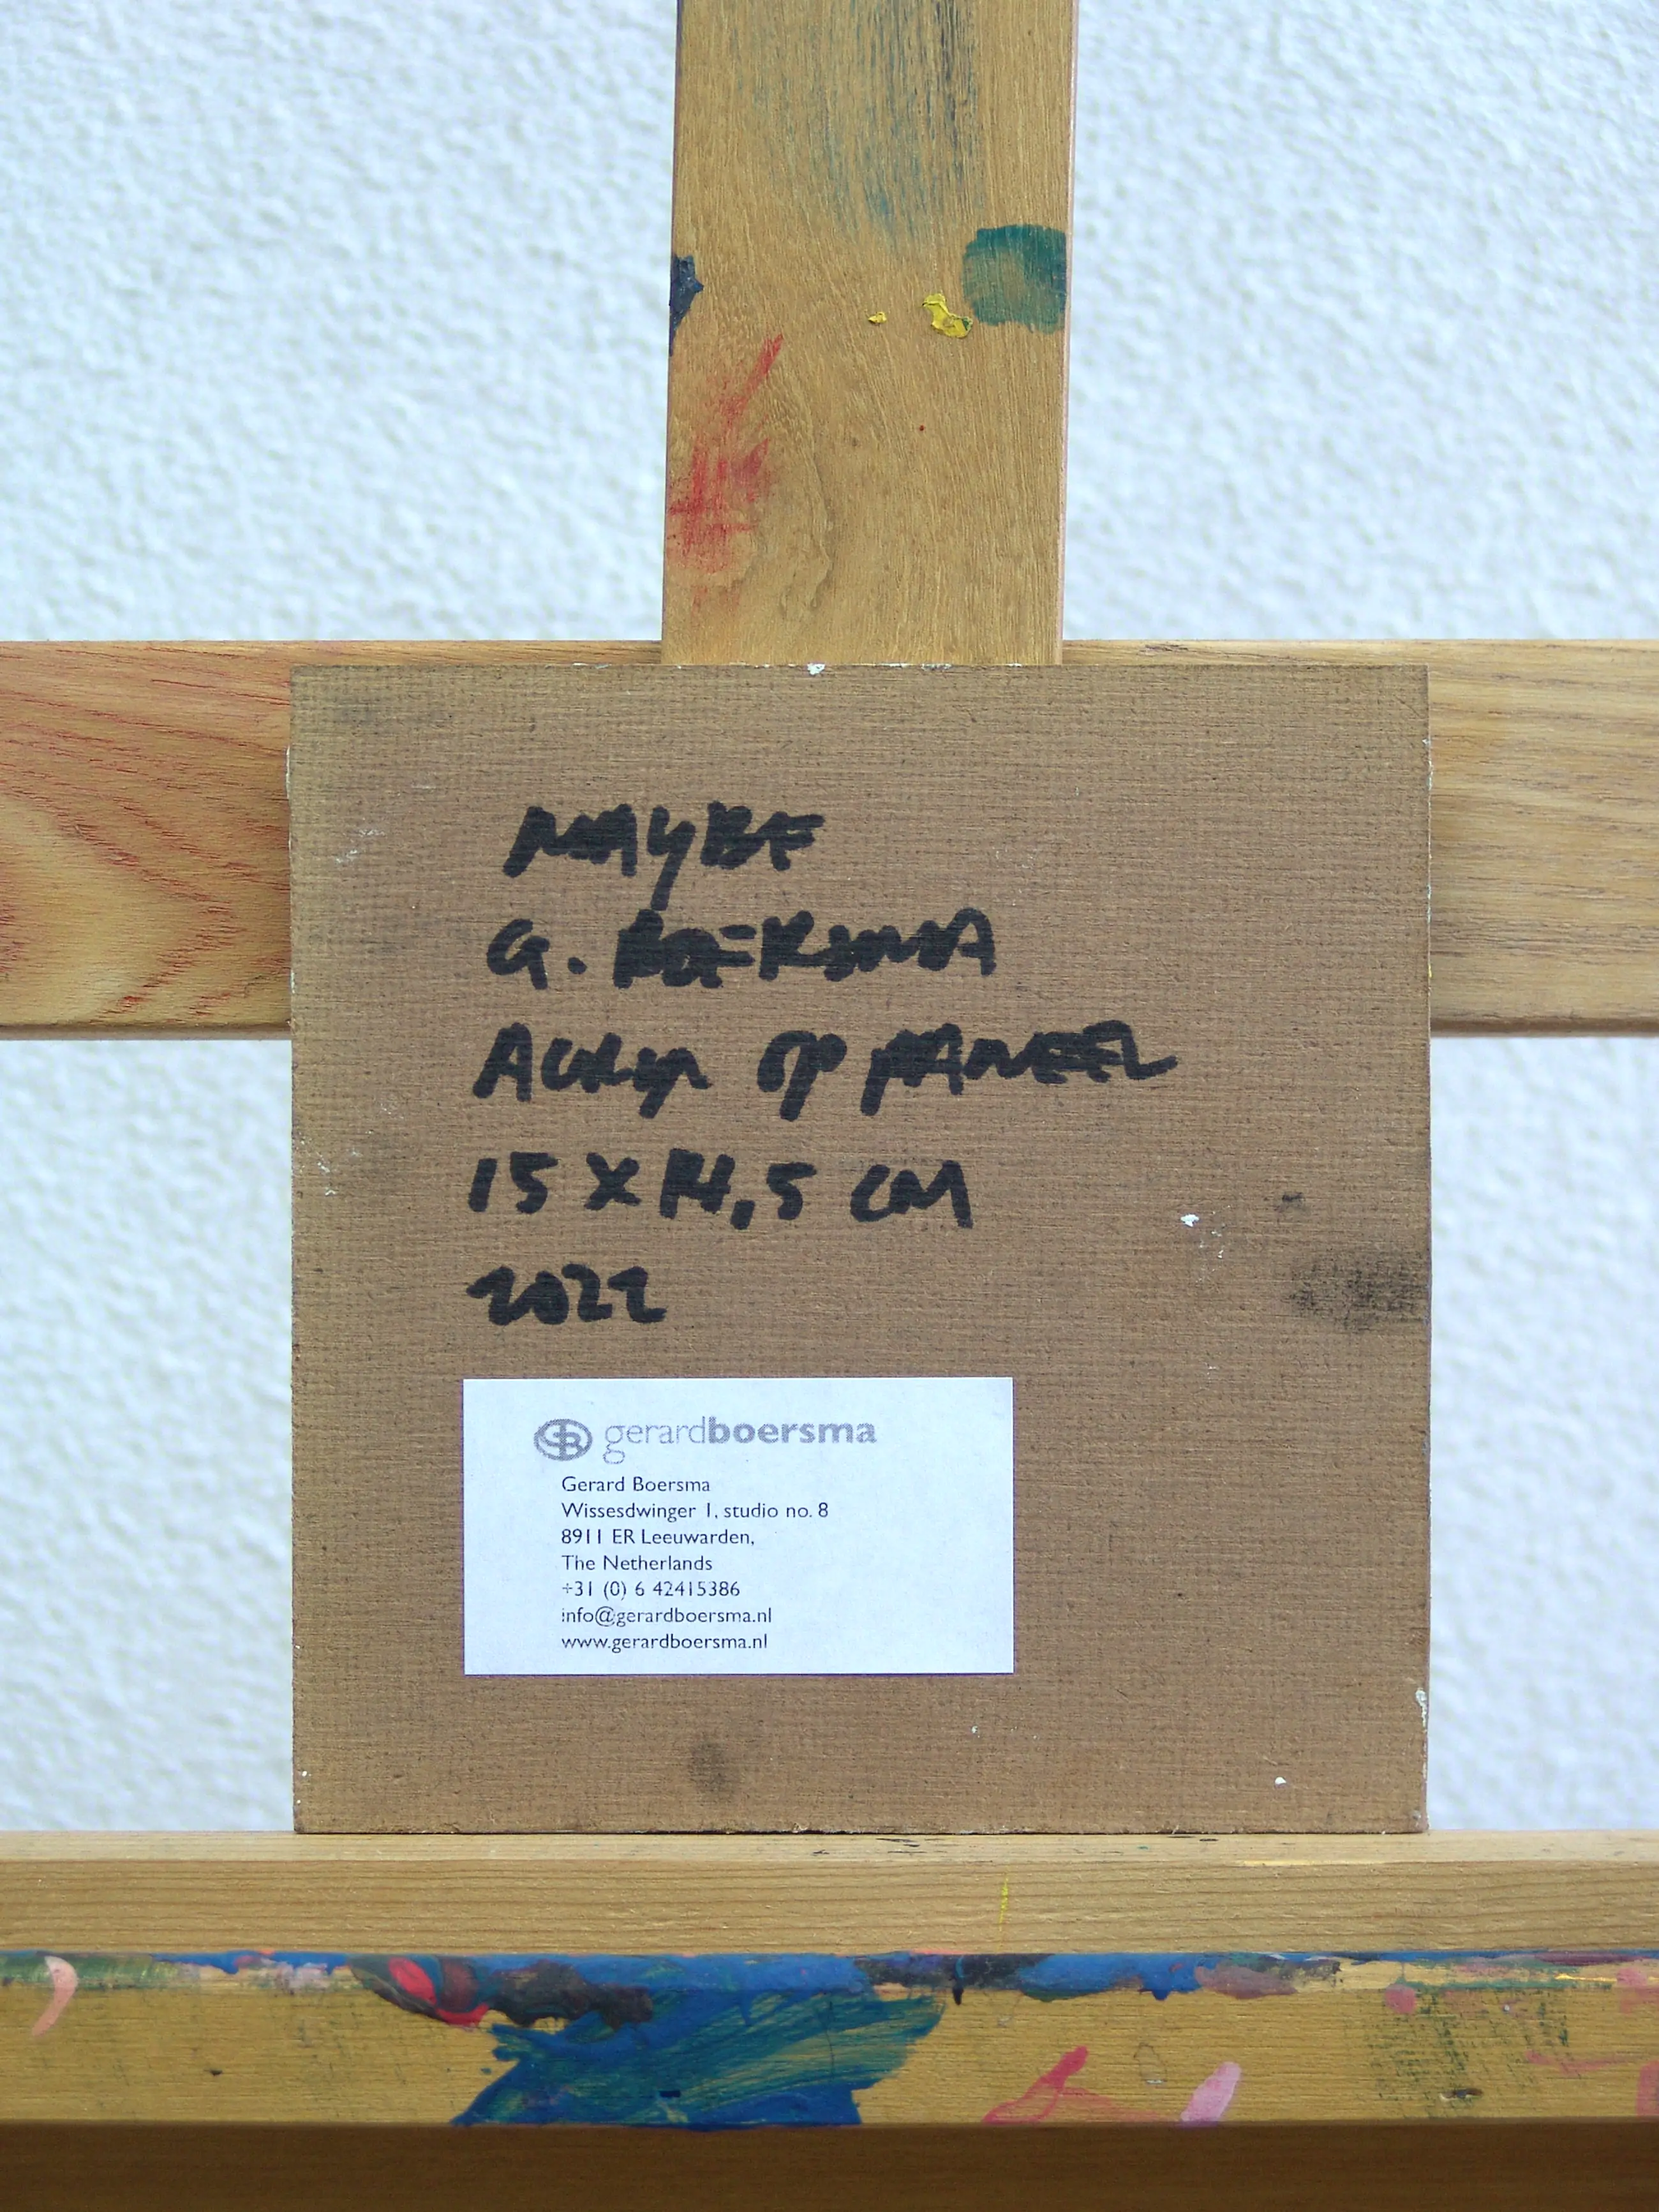 MAYBE
G. BOERSMA
ACRYL OP PANEEL
15 X 14,5 CM
2022
gerardboersma
Gerard Boersma
Wissesdwinger 1, studio no. 8
8911 ER Leeuwarden,
The Netherlands
+31 (0) 6 42415386
info@gerardboersma.nl
www.gerardboersma.nl